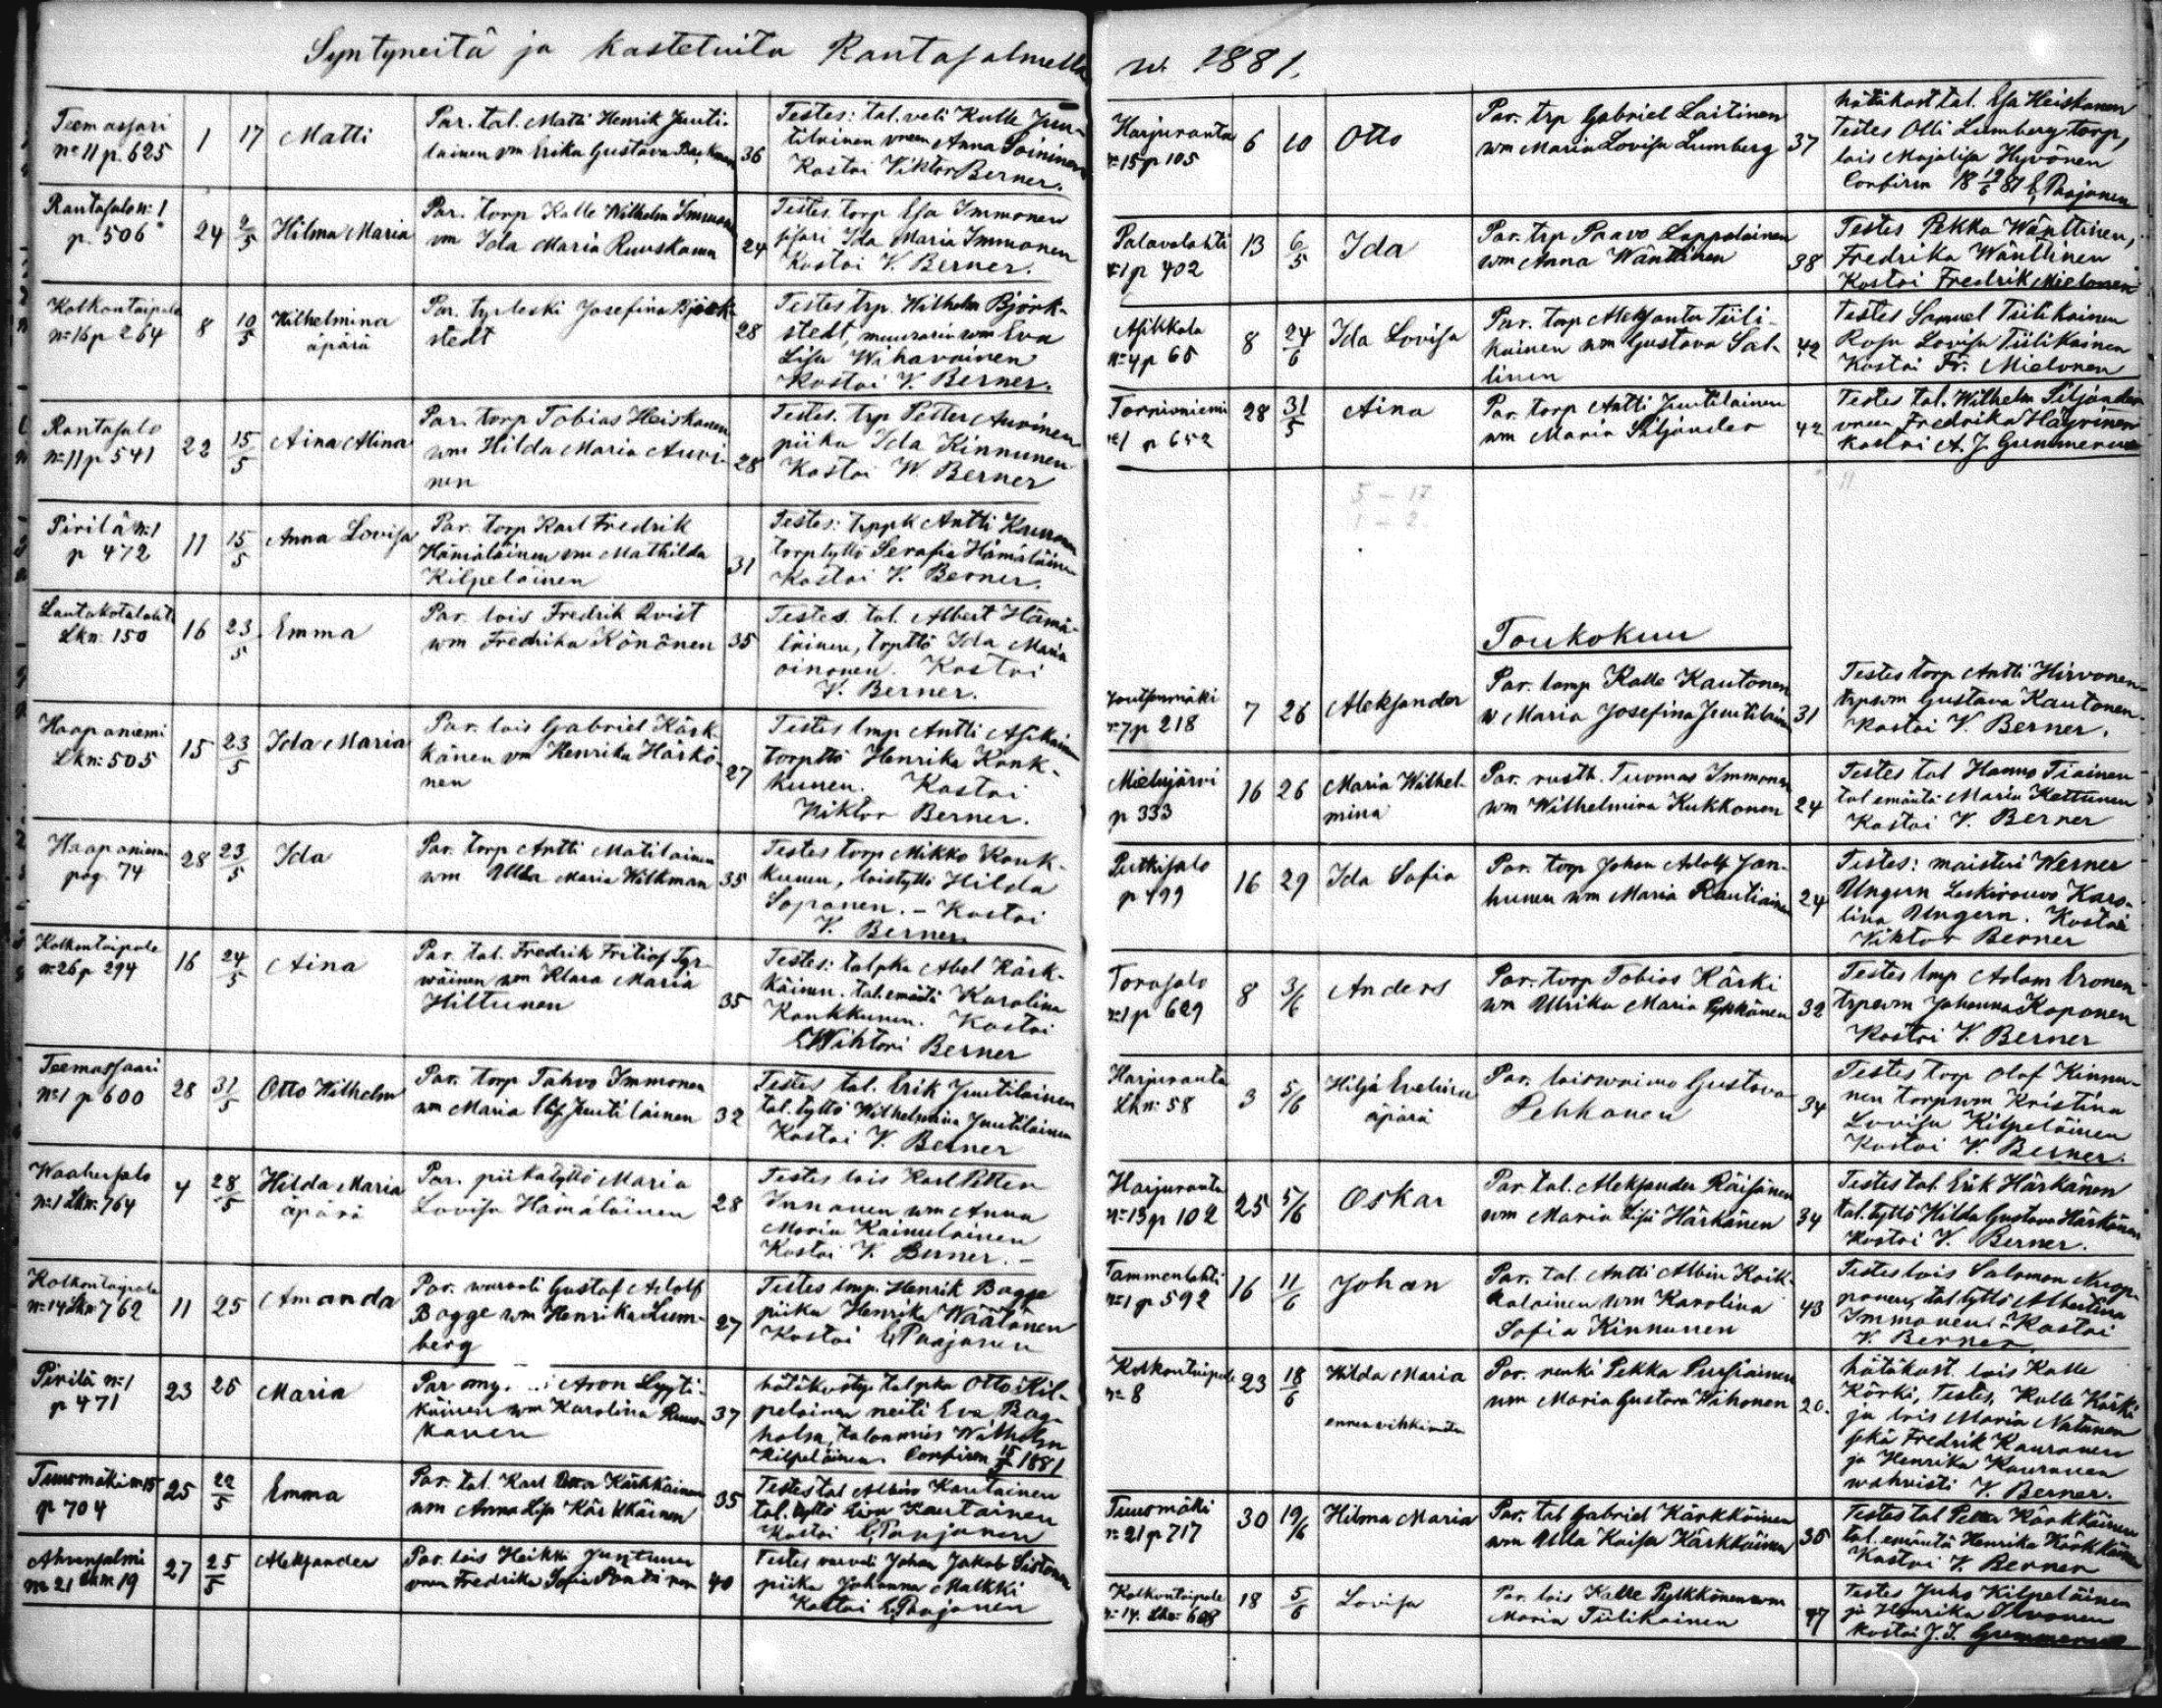 Syntyneitä ja kastetuita Rantasalmella
Teemassari
no 11 p. 625
1 17 Matti
Par. tal. Matti Henrik Juuti-
lainen vm Erika Gustava Backman
36
Testes: tal. veli Kalle Juu-
tilainen vrem Anna Soininen
Kastoi Viktor Berner.
Rantasalo n:1
p. 506
24 2/5 Hilma Maria
Par. torp Kalle Wilhelm Immonen
vm Ida Maria Ruuskanen
24
Testes. torp Esa Immonen
sisari Ida Maria Immonen
Kastoi V. Berner.
Kolkontaipale
n:16 p 264
8 10/5 Wilhelmina
äpärä
Par. Josefina Björk-
stedt
28
Testes trp. Wilhelm Björk-
stedt, muurarin vm Eva
Lisa Wihavainen
Kastoi V. Berner.
Rantasalo
n:11 p 541
22 15/5 Aina Alina
Par. torp Tobias Heiskanen
wm Hilda Maria Auvi-
nen
28
Testes. trp Petter Auvinen
piika Ida Kinnunen
Kastoi W. Berner
Pirilä n:1
p 472
11 15/5 Anna Lovisa
Par. torp Karl Fredrik
Hämäläinen vm Mathilda
Kilpeläinen
31
Testes: trppk Antti Kauronen
torp tyttö Serafia Hämäläinen
Kastoi V. Berner.
Lautakotalahti
Lkn: 150
16 23/5 Emma
Par. lois Fredrik Qvist
wm Fredrika Könönen
35
Testes. tal. Albert Hämä-
läinen, trpttö Ida Maria
oinonen. Kastoi
V. Berner.
Haapaniemi
Lkn: 505
15 23/5 Ida Maria
Par. lois Gabriel Kärk-
känen vm Henrika Härkö-
nen
27
Testes lmp Antti Asikainen
torpttö Henrika Konk-
kunen. Kastoi
Viktor Berner.
Haapaniemi
pag. 74
28 23/5 Ida
Par. torp Antti Matilainen
wm Ulla Maria Wilkman
35
Testes torp Mikko Konk-
kunen, loistyttö Hilda
Soponen. - Kastoi
V. Berner
Kolkontaipale
n:26 p 294
16 24/5 Aina
Par. tal. Fredrik Fritiof Tyr-
wäinen wm Klara Maria
Hiltunen
35
Testes: talpka Abel Kärk-
käinen. tal. emäntä Karolina
Konkkunen. Kastoi
Wiktori Berner
Teemassaari
N:1 p 600
28 31/5 Otto Wilhelm
Par. torp Tahvo Immonen
wm Maria Lisa Juutilainen
32
Testes tal. Erik Juutilainen
tal. tyttö Wilhelmina Juutilainen
Kastoi V. Berner
Waahersalo
n:1 Lkn: 764
4 28/5 Hilda Maria
äpärä
Par. piikatyttö Maria
Lovisa Hämäläinen
28
Testes lois Karl Petter
Innanen wm Anna
Maria Kainulainen
Kastoi V. Berner. -
Kolkontaipale
n:14 Lkn 762
11 25 Amanda
Par. Gustaf Adolf
Bagge wm Henrika Lum-
berg
27
Testes lmp. Henrik Bagge
piika Henrika Wäätänen
Kastoi E. Paajanen
Pirilä n:1
p 471
23 25 Maria
Par Aron Lyyti-
käinen wm Karolina Ruus-
kanen
37
talpka Otto Kil-
peläinen neiti Eva Bag-
talonmies Wilhelm
Kilpeläinen Confirm 1881
Tuusmäki n:15
p 704
25 22/5 Emma
Par. tal. Karl Petter Kärkkäinen
wm Anna Lisa Kärkkäinen
35
Testes tal Albin Kautainen
tal. tyttö Eiva Kautainen
Kastoi E. Paajanen
Ahvensalmi
n: 21 Lkm 19
27 25/5 Aleksander
Par. lois Heikki Juntunen
vrem Fredrika Sofia
40
Testes Johan Jakob Sistonen
piika Johanna Malkki
Kastoi E. Paajanen
w. 1881.
Harjuranta
n:15 p 105
6 10 Otto
Par. trp Gabriel Laitinen
wm Maria Lovisa Lumberg
37
hätäkast tal. Esa Heiskanen
Testes Olli Lumberg torp,
lois Majalisa Hyvönen
Confirm 18 19/6 81 E. Paajanen
Palavalahti
n:1 p 402
13 6/5 Ida
Par. trp Paavo Lappalainen
wm Anna Wänttinen
38
Testes Pekka Wänttinen,
Fredrika Wänttinen
Kastoi Fredrik Mielonen
Asikkala
n:4 p 65
8 24/6 Ida Lovisa
Par. torp Aleksanter Tiili-
kainen wm Gustava Sal-
linen
42
Testes Samuel Tiilikainen
Rosa Lovisa Tiilikainen
Kastoi Fr. Mielonen
Tornioniemi
n:1 p 652
28 31/5 Aina
Par. torp Antti Juutilainen
wm Maria Siljander
42
Testes tal. Wilhelm Siljander
vrem Fredrika Häyrinen
kastoi A. J. Gummerus
5 - 17
1 - 2
11
Toukokuu
n:7 p 218
7 26 Aleksander
Par. lamp Kalle Kautonen
w Maria Josefina Juutilainen
31
Testes torp Antti Hirvonen
trpwm Gustava Kautonen.
Kastoi V. Berner.
Mielusjärvi
p 333
16 26 Maria Wilhel-
mina
Par. rusth. Tuomas Immonen
wm Wilhelmina Kukkonen
24
Testes tal Hannes Tiainen
tal emäntä Maria Kettunen
Kastoi V. Berner
Putkisalo
p 499
16 29 Ida Sofia
Par. torp Johan Adolf Jan-
hunen wm Maria Rautiainen
24
Testes: maisteri Werner
Ungern Leskirouva Karo-
lina Ungern. Kastoi
Viktor Berner
Torasalo
n:1 p 629
8 3/6 Anders
Par. torp Tobias Kärki
wm Ulrika Maria Pykkänen
32
Testes lmp Adam Eronen
trpwm Johanna Koponen
Kastoi V. Berner
Harjuranta
Lkn: 58
3 5/6 Hilja Evelina
äpärä
Par. loiswaimo Gustava
Pehkonen
34
Testes torp Olof Kinnu-
nen torpwm Kristina
Lovisa Kilpeläinen
Kastoi V. Berner.
Harjuranta
n:13 p 102
25 5/6 Oskar
Par. tal. Aleksander Räisänen
wm Maria Lisa Härkänen
34
Testes tal. Erik Härkänen
tal. tyttö Hilda Gustava Härkönen
Kastoi V. Berner.
Tammenlahti
n:1 p 592
16 11/6 Johan
Par. tal. Antti Albin Koik-
kalainen wm Karolina
Sofia Kinnunen
43
Testes lois Salomon Nuop-
ponen, tal tyttö Albertina
Immonen. Kastoi
V. Berner
Kolkontaipale
n: 8
23 18/6 Hilda Maria
ennen vihkimistä
Par. renki Pekka Pursiainen
wm Maria Gustava Wihonen
20.
hätäkast. lois Kalle
Kärki, Testes, Kalle Kärki
ja lois Maria Natunen
Fredrik Kauranen
ja Henrika Kauranen
wahvisti V. Berner.
Tuusmäki
n: 21 p 717
30 19/6 Hilma Maria
Par. tal Gabriel Kärkkäinen
wm Ulla Kaisa Kärkkäinen
36
Testes tal Pekka Kärkkäinen
tal. emäntä Henrika Kärkkäinen
Kastoi V. Berner
Kolkontaipale
n: 14. Lkn: 608
18 5/6 Lovisa
Par. lois Kalle Pylkkönen wm
Maria Tiilikainen
47
Testes Juho Kilpeläinen
ja Henrika Olvonen
kastoi J. J. Gummerus